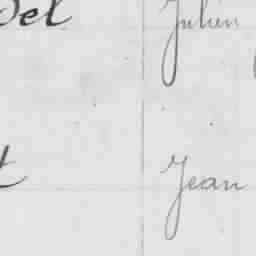 del Julien
t Jean